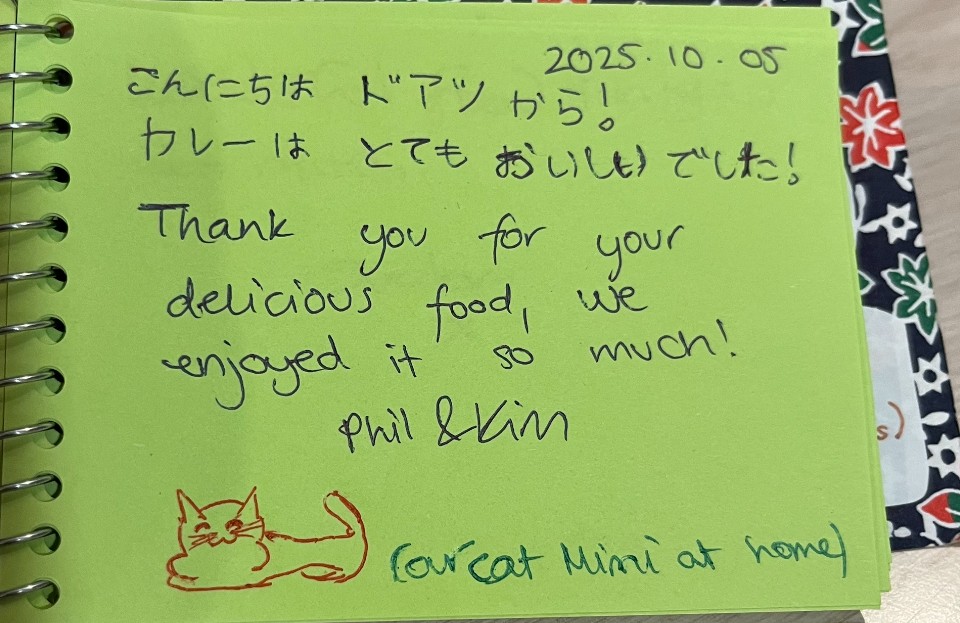 2025.10.05
こんにちは ドアツ から!
カレーは とても おいしい でした!
Thank you for your
delicious food, we
enjoyed it so much!
Phil & Kim
(our cat Mimi at home)
s)